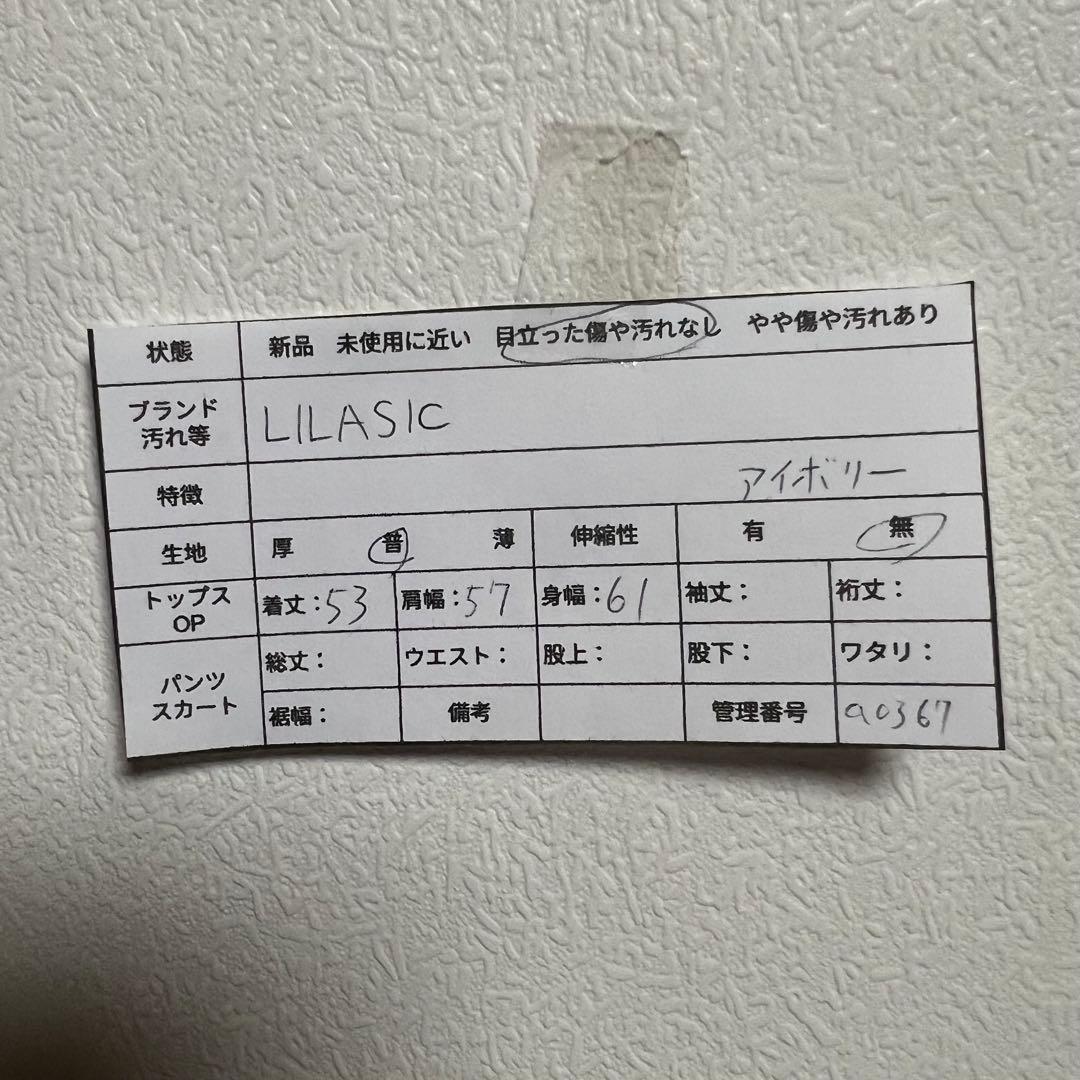 状態 新品 未使用に近い 目立った傷や汚れなし やや傷や汚れあり
ブランド 汚れ等 LILASIC
特徴 アイボリー
生地 厚 普 薄 伸縮性 有 無
トップス OP 着丈：53 肩幅：57 身幅：61 袖丈： 裄丈：
パンツ スカート 総丈： ウエスト： 股上： 股下： ワタリ：
裾幅： 備考 管理番号 a0367